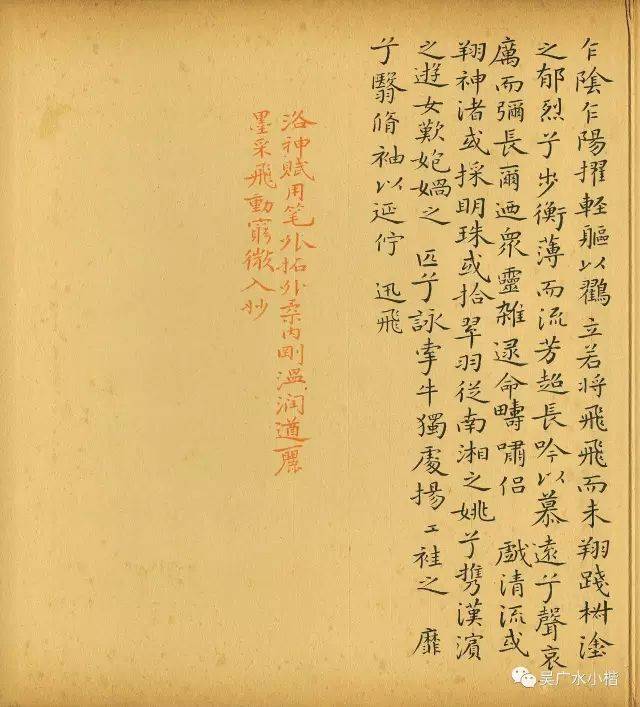 乍陰乍陽擢輕軀以鸖立若将飛飛而未翔踐椒塗
之郁烈兮步衡薄而流芳超長吟以慕遠兮聲哀
厲而彌長爾迺眾靈雜遝命疇嘯侶 戲清流或
翔神渚或採明珠或拾翠羽從南湘之姚兮携漢濱
之遊女歎媧之 匹兮詠牽牛獨處揚袿之 靡
兮翳脩袖以延佇 迅飛
洛神賦用笔外拓外柔内剛温润遒麗
墨采飛動窮微入妙
吴广水小楷